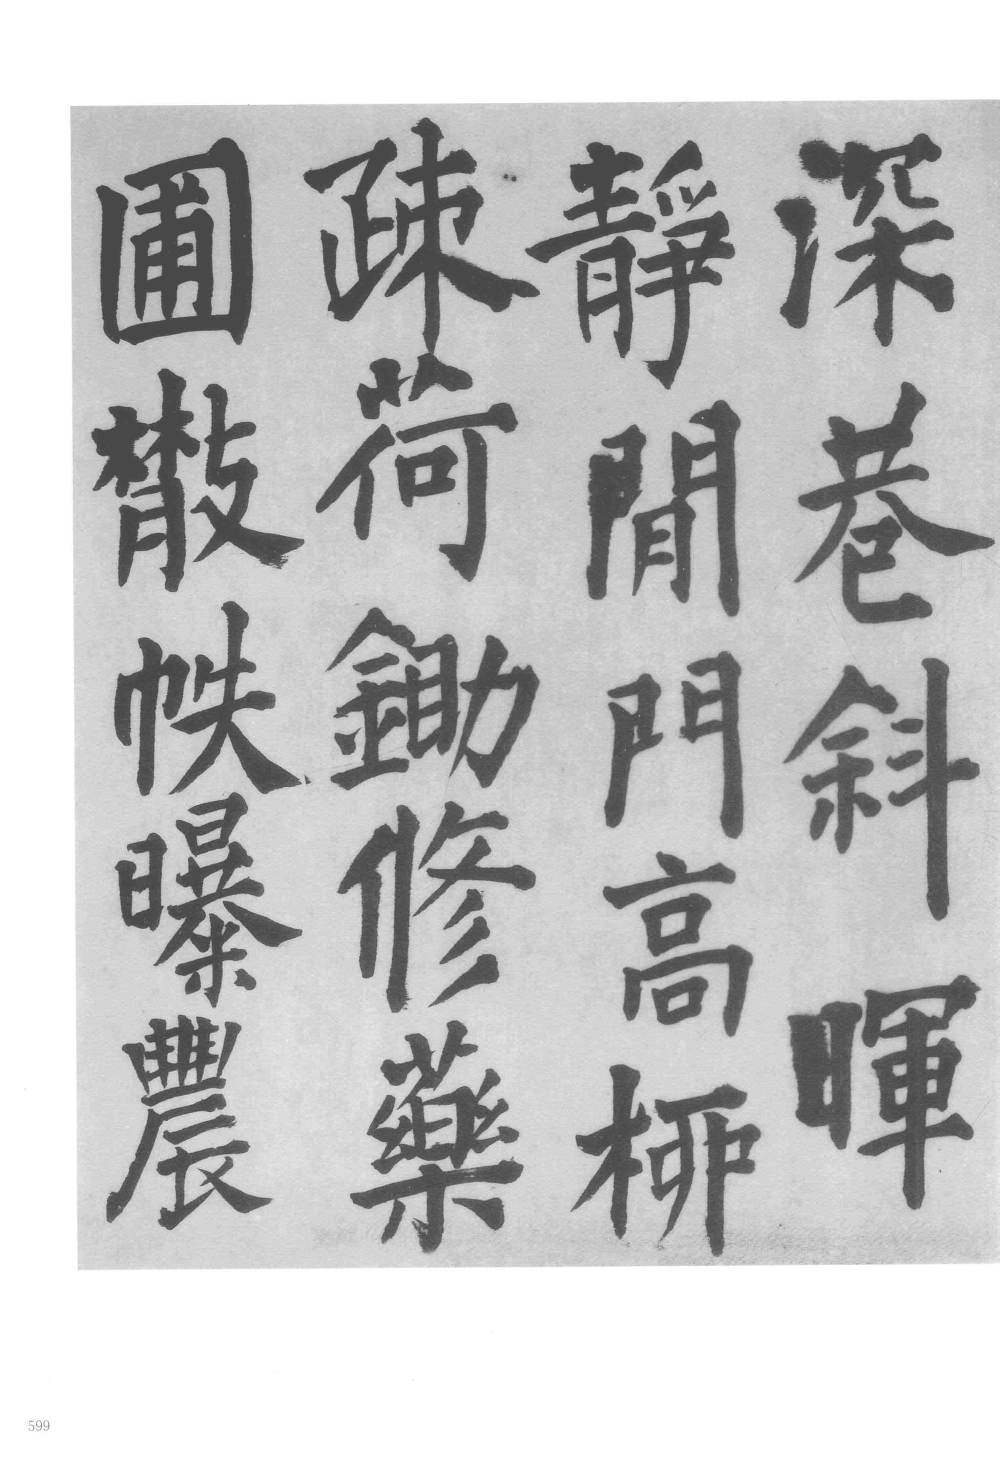 深巷斜暉
靜閒門高柳
疎荷鋤修藥
圃散帙曝農
599